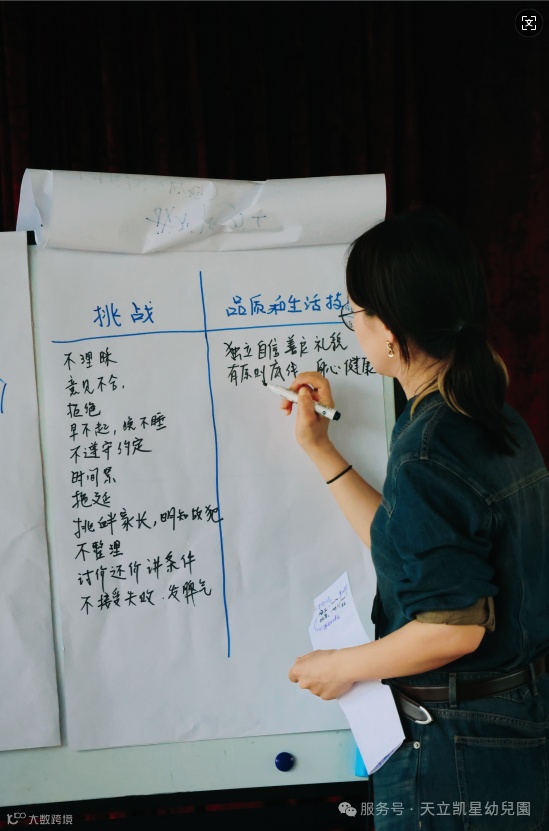 挑战
不理睬
意见不合,
拒绝
早不起,晚不睡
不遵守约定
时间紧
拖延
挑衅家长,明知故犯
不整理
讨价还价 讲条件
不接受失败.发脾气
品质和生活技
独立 自信 善良 礼貌
有原则 身心健康
服务号·天立凯星幼兒園
大数跨境